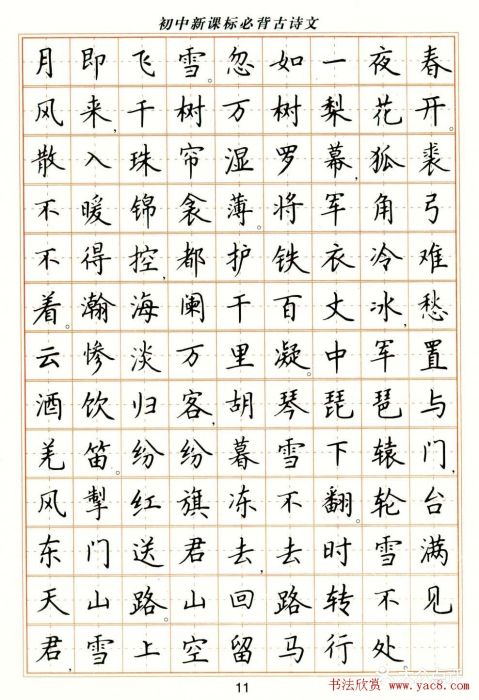 初中新课标必背古诗文
月即飞雪。忽如一夜春
风来，千树万树梨花开。
散入珠帘湿罗幕，狐裘
不暖锦衾薄。将军角弓
不得控，都护铁衣冷难
着。瀚海阑干百丈冰，愁
云惨淡万里凝。中军置
酒饮归客，胡琴琵琶与
羌笛。纷纷暮雪下辕门，
风掣红旗冻不翻。轮台
东门送君去，去时雪满
天山路。山回路转不见
君，雪上空留马行处。
11
书法欣赏
www.yac8.com